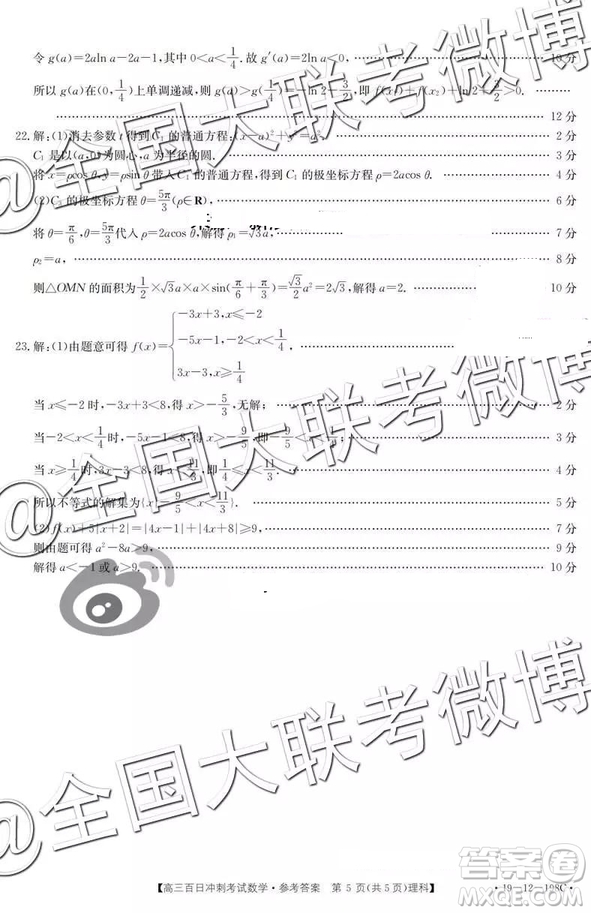 令 g(a)=2aln a-2a-1,其中 0<a<1/4. 故 g′(a)=2ln a<0, 10 分
所以 g(a)在(0,1/4)上单调递减,则 g(a)>g(1/4)=-ln 2-3/2,即 f(x₁)+f(x₂)+ln 2+3/2>0.
12 分
22.解:(1)消去参数 t 得到 C₁ 的普通方程:(x-a)²+y²=a², 2 分
C₁ 是以(a,0)为圆心,a 为半径的圆. 3 分
将 x=ρcos θ,y=ρsin θ 带入 C₁ 的普通方程,得到 C₁ 的极坐标方程 ρ=2acos θ. 4 分
(2)C₃ 的极坐标方程 θ=5π/3(ρ∈R), 5 分
将 θ=π/6,θ=5π/3代入 ρ=2acos θ,解得 ρ₁=√3a, 7 分
ρ₂=a, 8 分
则△OMN 的面积为1/2×√3a×a×sin(π/6+π/3)=√3/2a²=2√3,解得 a=2. 10 分
23.解:(1)由题意可得 f(x)={
-3x+3,x≤-2
-5x-1,-2<x<1/4.
3x-3,x≥1/4
当 x≤-2 时,-3x+3<8,得 x>-5/3,无解; 2 分
当-2<x<1/4时,-5x-1<8,得 x>-9/5,即-9/5<x<1/4; 3 分
当 x≥1/4时,3x-3<8,得 x<11/3,即1/4≤x<11/3. 4 分
所以不等式的解集为{x|-9/5<x<11/3}. 5 分
(2)f(x)+5|x+2|=|4x-1|+|4x+8|≥9, 7 分
则由题可得 a²-8a≥9, 9 分
解得 a≤-1 或 a≥9. 10 分
@全国大联考微博
@全国大联考微博
@全国大联考微博
【高三百日冲刺考试数学·参考答案 第 5 页(共 5 页)理科】
·19-12-198C·